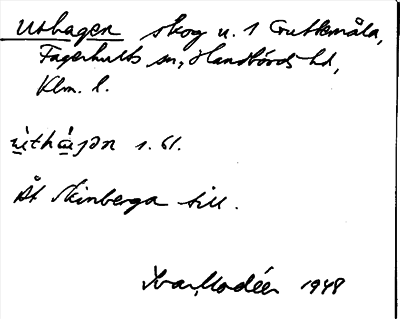 Uthagen skog u. 1 Gruttemåla,
Fagerhults sn, Handbörds hd,
Klm. l.
ùthàgən s. 61.
Åt Skinberga till.
Ivar Modéer 1948